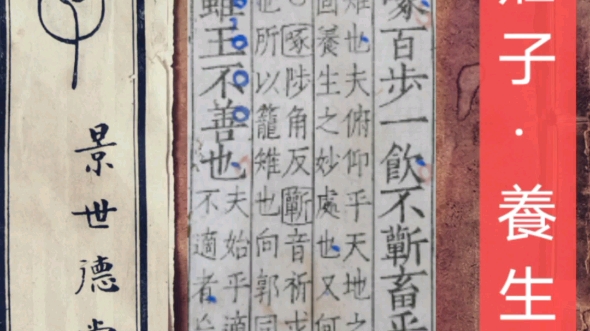 子·養生
百步一飲不蘄畜乎
雉也夫俯仰乎天地之
養生之妙處也又何
啄陟角反蘄音祈求
所以籠雉也向郭同
雖王不善也夫始乎適
不適者
景世德堂